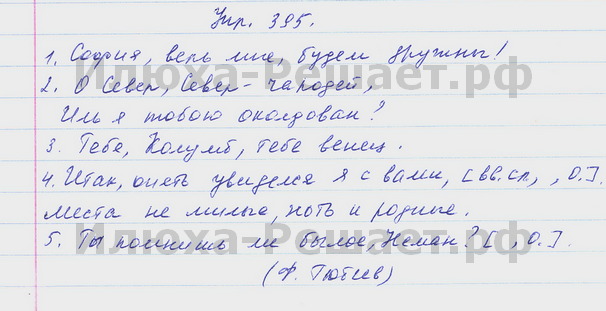 Упр. 395.
1. София, верь мне, будем дружны!
2. О Север, Север - чародей,
Иль я тобою околдован?
3. Тебе, Колумб, тебе венец.
4. Итак, опять увиделся я с вами, [вв.сл, , О.].
места не милые, хоть и родные.
5. Ты помнишь ли былое, Неман? [ , О.].
(Ф. Тютчев)
Илюха-Решает.рф
Илюха-Решает.рф